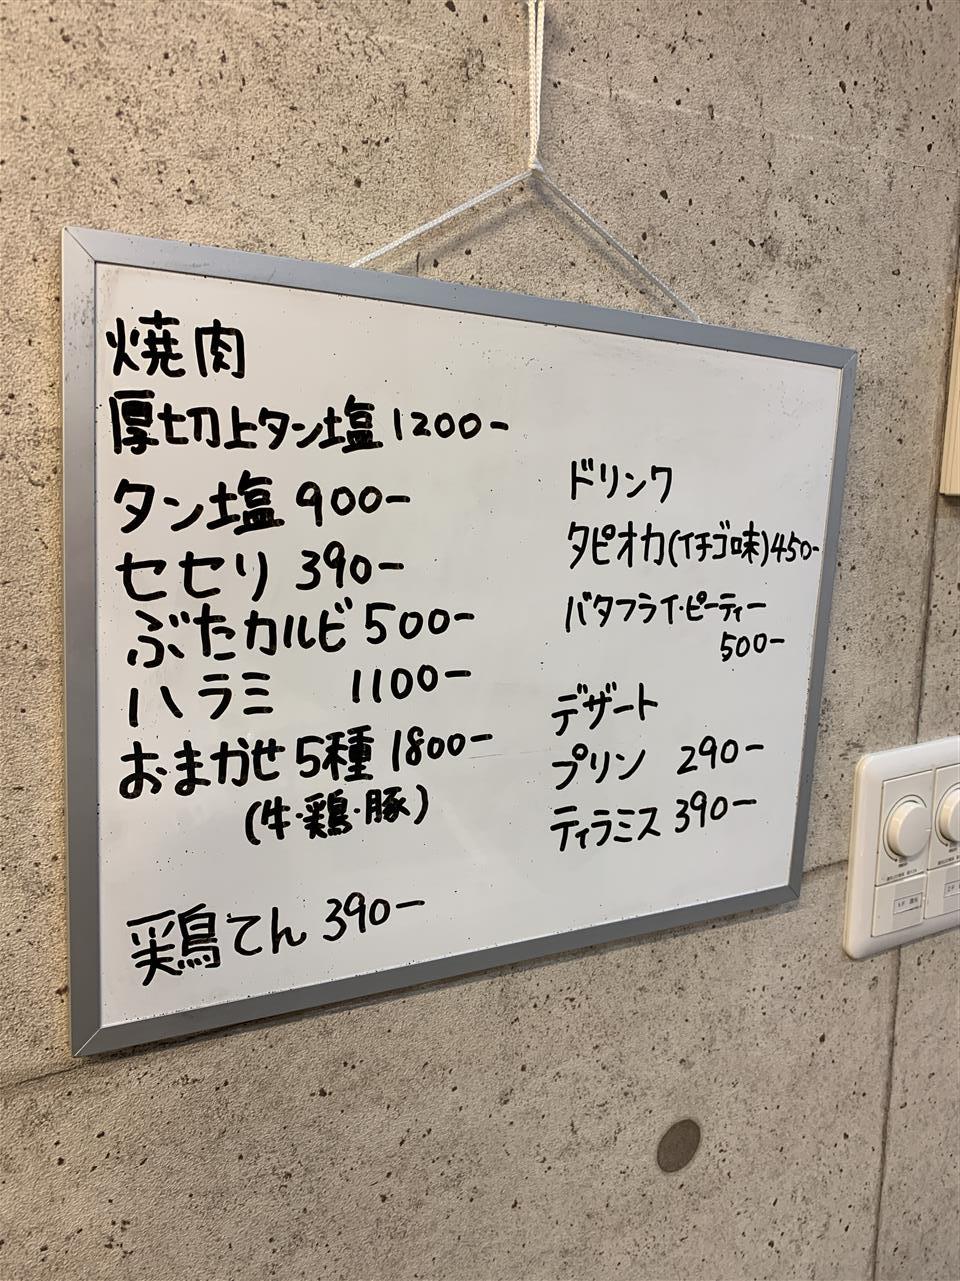 焼肉
厚切上タン塩 1200-
タン塩 900-
セセリ 390-
ぶたカルビ 500-
ハラミ 1100-
おまかせ5種 1800-
(牛・鶏・豚)
鶏てん 390-
ドリンク
タピオカ(イチゴ味)450-
バタフライ・ピーティー
500-
デザート
プリン 290-
ティラミス 390-